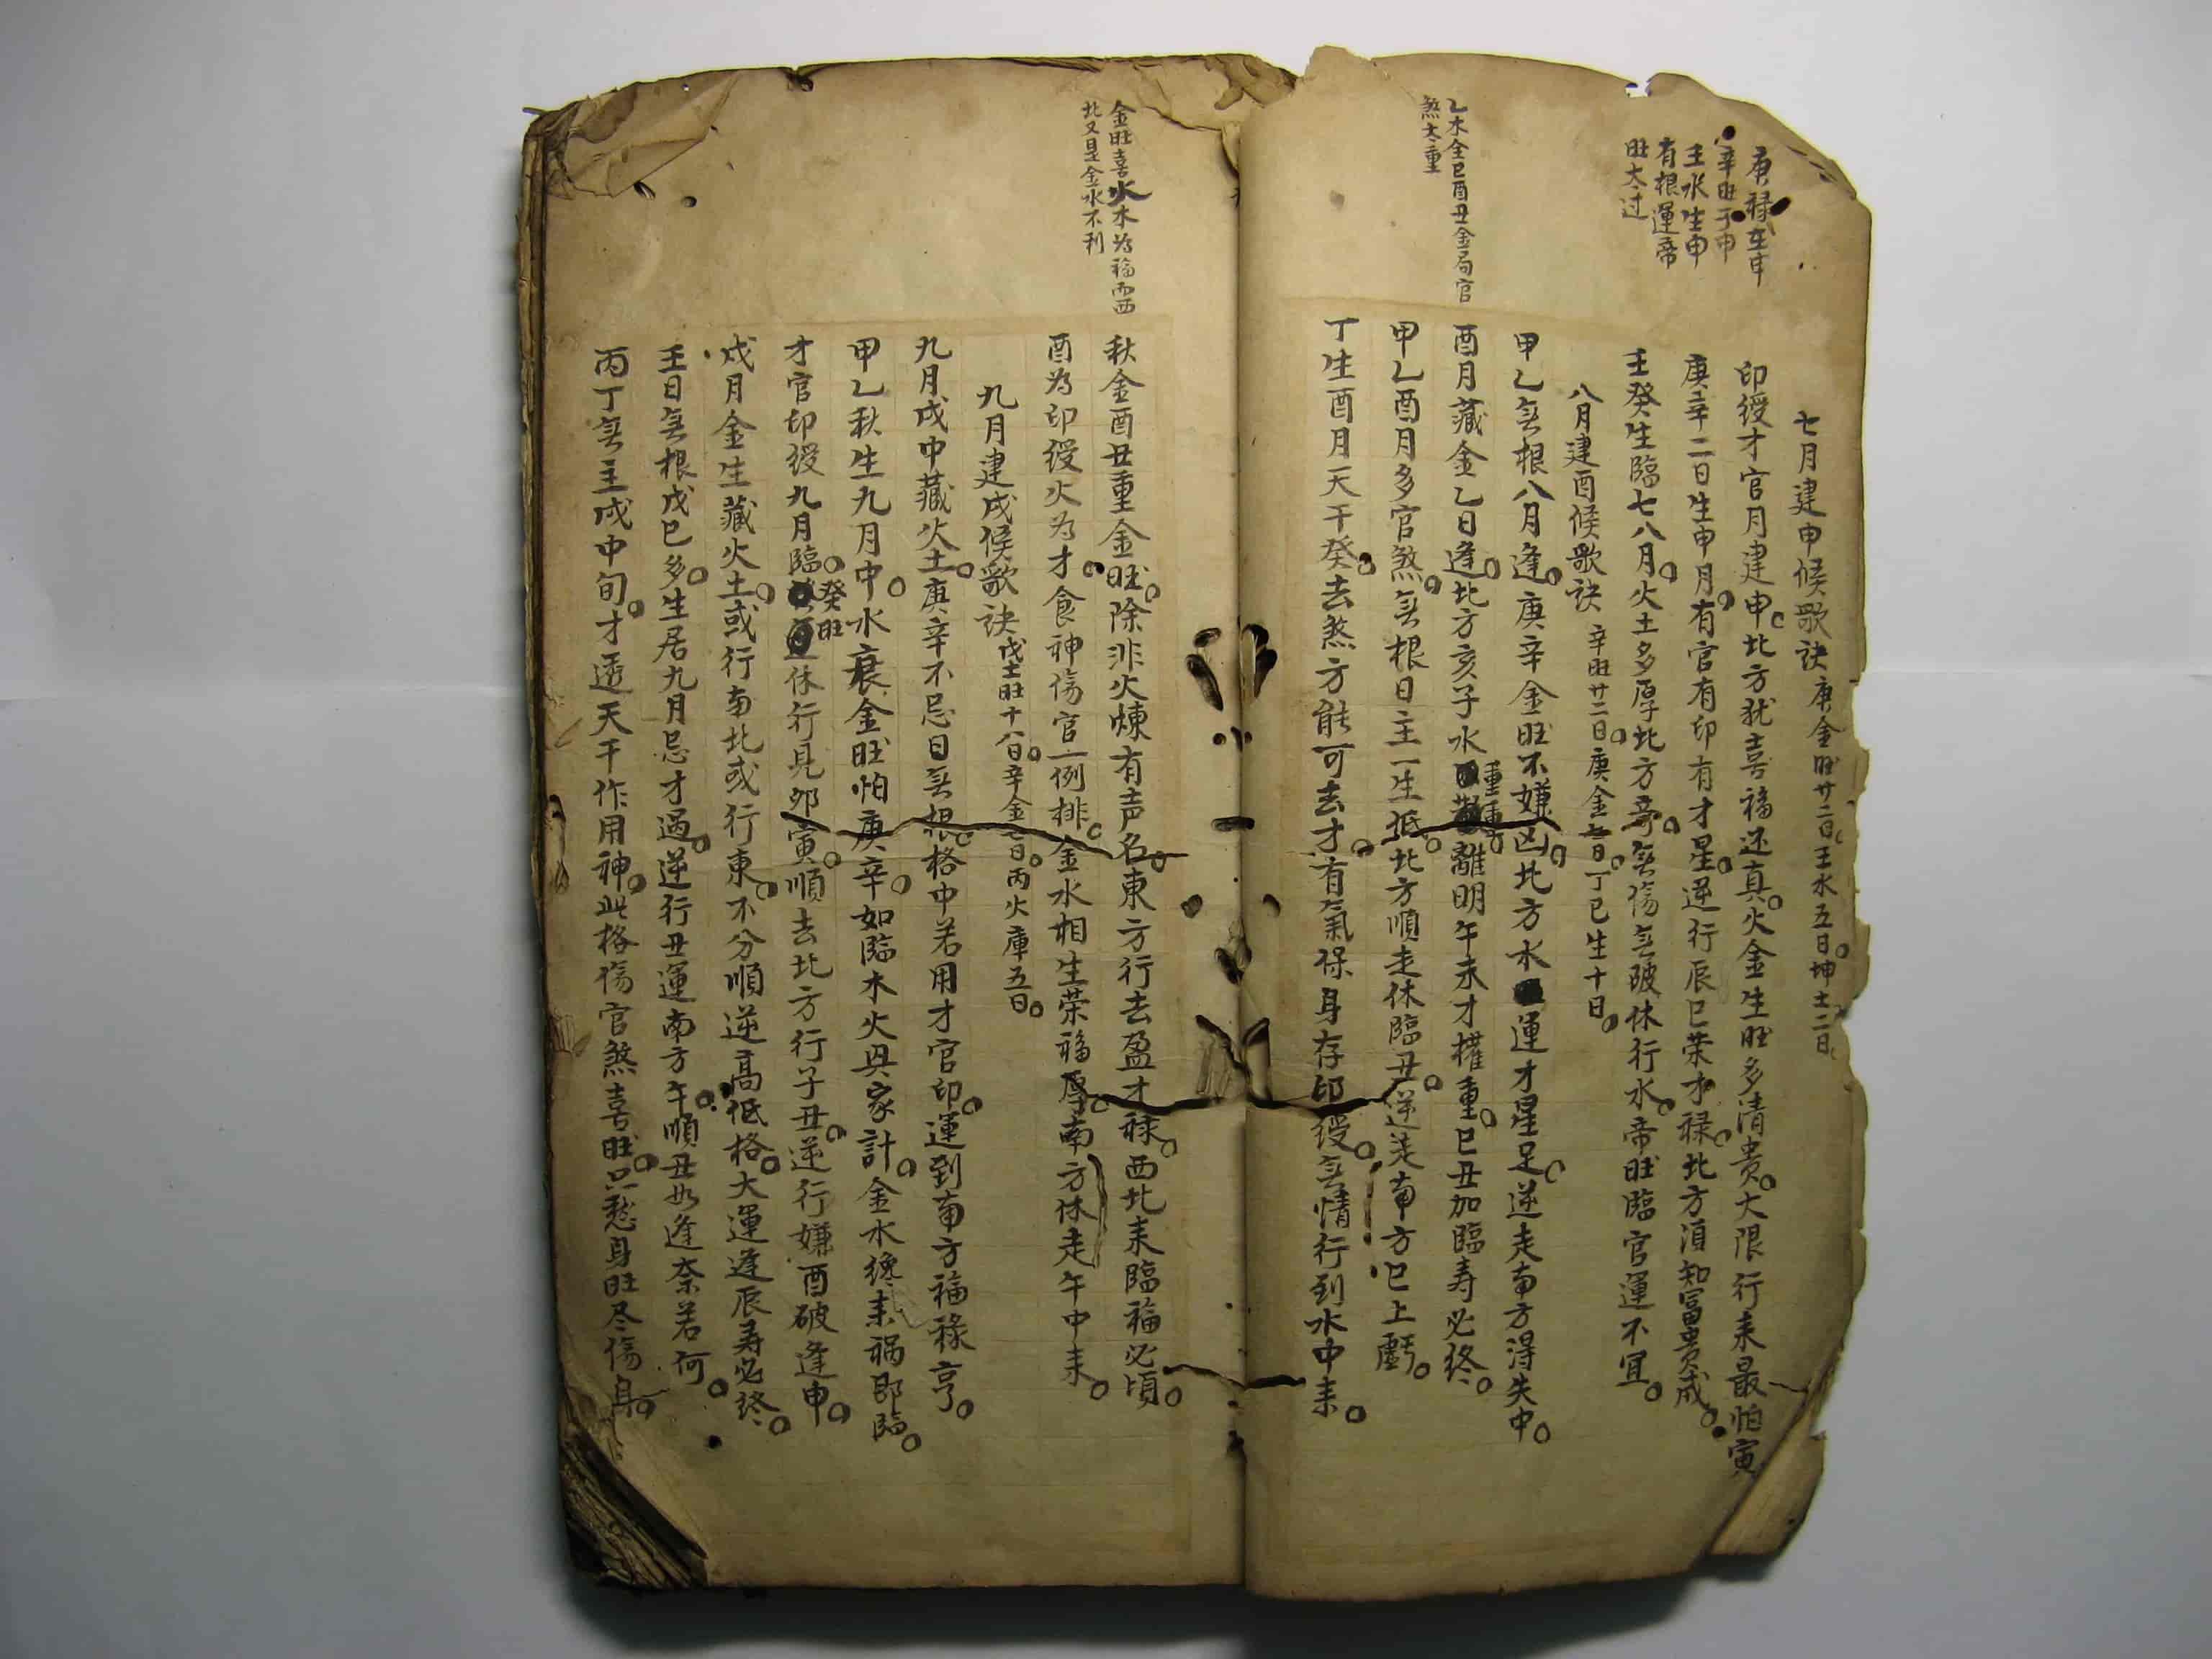 庚禄在申
辛旺于申
壬水生申
有根運帝
旺太过
乙木全巳酉丑金局官
煞太重
七月建申候歌訣 庚金旺廿二日。壬水五日。坤土二日。
印綬才官月建申。北方犹喜福还真。火金生旺多清贵。大限行来最怕寅
庚辛二日生申月。有官有印有才星。逆行辰巳荣才禄。北方須知冨贵成。
壬癸生臨七八月。火土多厚北方奇。無傷無破休行水。帝旺臨官運不宜。
八月建酉候歌訣 辛旺廿二日。庚金七日。丁巳生十日。
甲乙無根八月逢。庚辛金旺不嫌凶。北方水運才星足。逆走南方得失中。
酉月藏金乙日逢。北方亥子水重重。離明午未才權重。巳丑加臨寿必终。
甲乙酉月多官煞。無根日主一生低。北方順走休臨丑。逆走南方巳上虧。
丁生酉月天干癸。去煞方能可去才。有氣保身存印綬。無情行到水中来。
金旺喜火木为福而西
北又是金水不利
秋金酉丑重金旺。除非火煉有声名。東方行去盈才禄。西北来臨福必頃。
酉为印綬火为才。食神傷官一例排。金水相生荣福厚。南方休走午中来。
九月建戌候歌訣 戊土旺十八日。辛金七日。丙火庫五日。
九月戌中藏火土。庚辛不忌日無根。格中若用才官印。運到南方福祿亨。
甲乙秋生九月中。水衰金旺怕庚辛。如臨木火興家計。金水纔来禍即臨。
才官印綬九月臨。癸旺休行見卯寅。順去北方行子丑。逆行嫌酉破逢申。
戌月金生藏火土。或行南北或行東。不分順逆高低格。大運逢辰寿必终。
壬日無根戊巳多。生居九月忌才過。逆行丑運南方午。順丑如逢奈若何。
丙丁無主戌中旬。才透天干作用神。此格傷官煞喜旺。只愁身旺尽傷身。